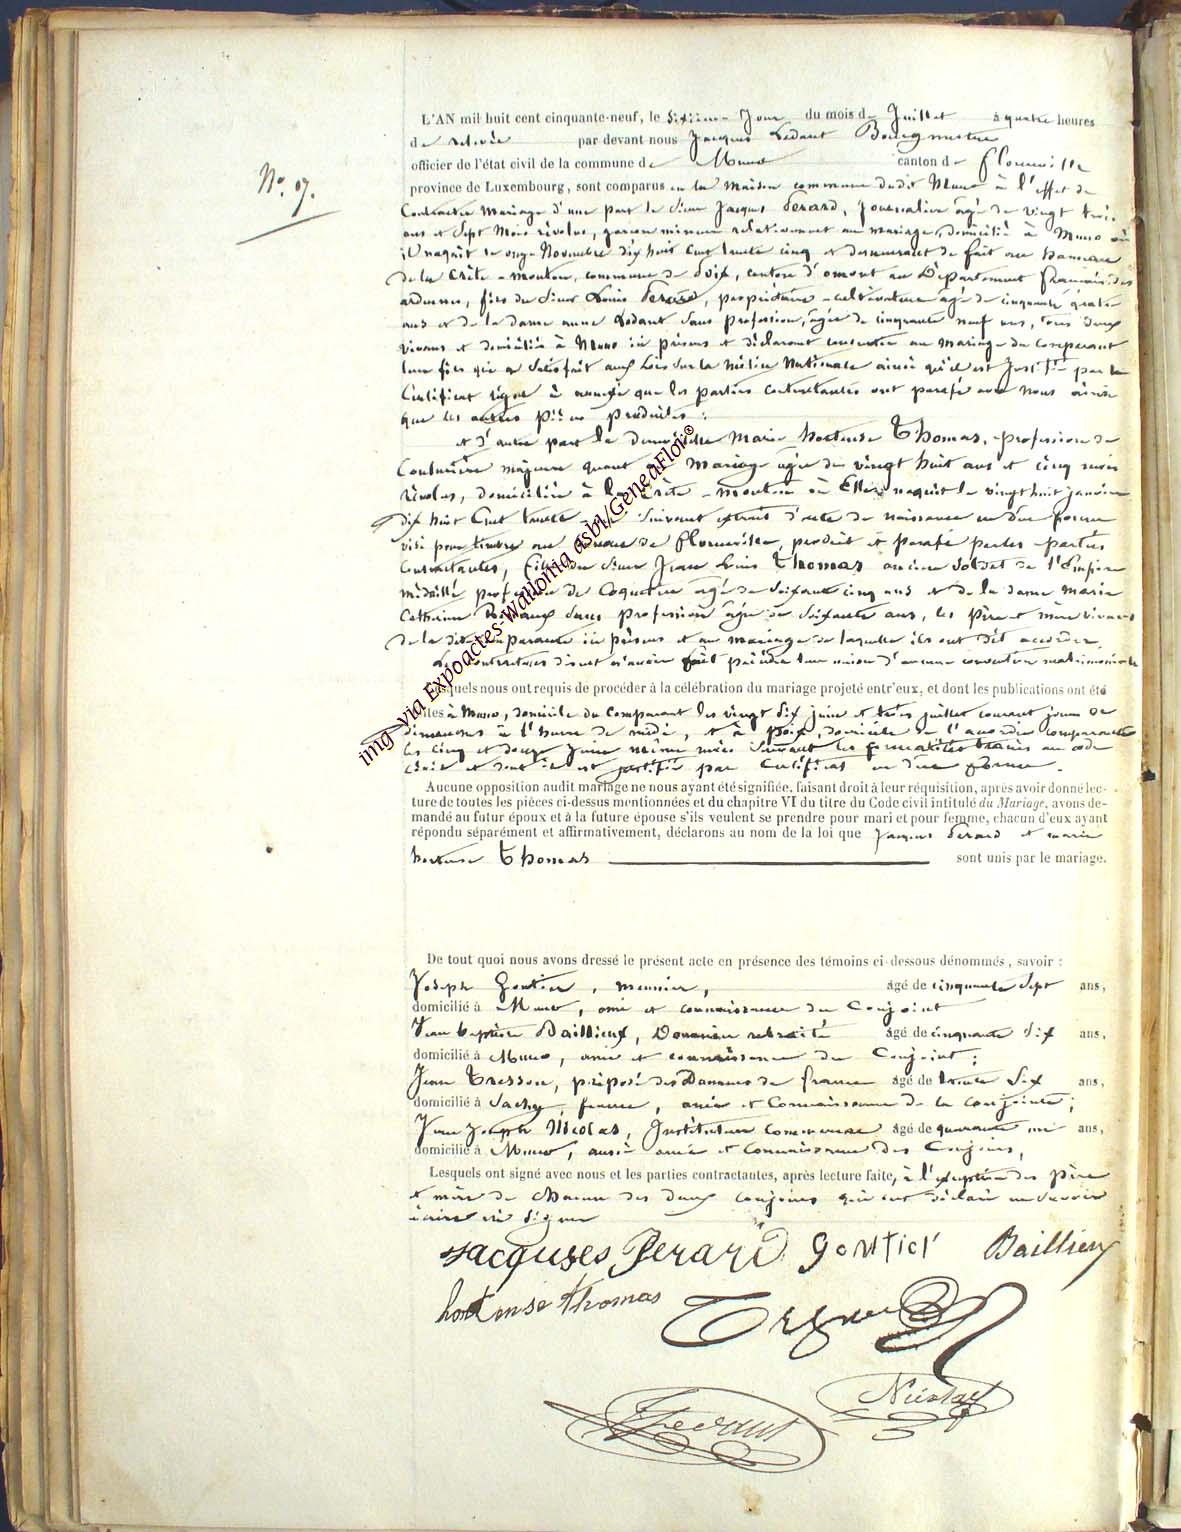 L'AN mil huit cent cinquante-neuf, le sixième Jour du mois de Juillet à quatre heures
de relevée par devant nous Jacques Ledant Bourgmestre
officier de l'état civil de la commune de Muno canton de Florenville
No. 07.
province de Luxembourg, sont comparus en la maison commune dudit Muno à l'effet de
Contracter mariage d'une part le sieur Jacques Perard, Journalier âgé de vingt trois
ans et sept mois révolus, garçon mineur relativement au mariage, domicilié à Muno où
il naquit le onze Novembre dix huit cent trente cinq et demeurant de fait au hameau
de la Crête-mouton, commune de Poix, canton d'omont au Département français des
ardennes, fils du sieur Louis Perard, propriétaire-cultivateur âgé de cinquante quatre
ans et de la dame anne Ledant sans profession, âgée de cinquante neuf ans, tous deux
vivans et domiciliés à Muno ici présens et déclarant consentir au mariage du comparant
leur fils qui a satisfait aux Lois sur la milice Nationale ainsi qu'il est justifié par le
Certificat signé à annexe que les parties contractantes ont parafé avec nous ainsi
que les autres pièces produites :
et d'autre part la demoiselle Marie hortense Thomas, profession de
Couturière majeure quant au mariage âgée de vingt huit ans et cinq mois
révolus, domiciliée à la Crête-mouton où Elle naquit le vingt huit janvier
dix huit Cent trente suivant extrait d'acte de naissance en due forme
visé pour timbre au bureau de Florenville, produit et parafé par les parties
contractantes, fille du sieur Jean Louis Thomas ancien soldat de l'Empire
médaillé profession de âgé de soixante cinq ans et de la dame marie
Catherine sans profession âgée de soixante ans, les père et mère vivans
de la dite comparante ici présens et au mariage de laquelle ils ont dit accorder
Les contractans disent n'avoir fait précéder leur union d'aucune convention matrimoniale
Lesquels nous ont requis de procéder à la célébration du mariage projeté entr'eux, et dont les publications ont été
faites à Muno, domicile du comparant les vingt six juin et trois juillet courant jours de
dimanches à l'heure de midi, et à Poix, domicile de l' comparante
les cinq et douze Juin même mois suivant les formalités au code
civil et dont il est justifié par Certificat en due forme.
Aucune opposition audit mariage ne nous ayant été signifiée, faisant droit à leur réquisition, après avoir donné lec-
ture de toutes les pièces ci-dessus mentionnées et du chapitre VI du titre du Code civil intitulé du Mariage, avons de-
mandé au futur époux et à la future épouse s'ils veulent se prendre pour mari et pour femme, chacun d'eux ayant
répondu séparément et affirmativement, déclarons au nom de la loi que Jacques Perard et marie
hortense Thomas sont unis par le mariage.
De tout quoi nous avons dressé le présent acte en présence des témoins ci-dessous dénommés, savoir :
Joseph Gontier, meunier, âgé de cinquante sept ans,
domicilié à Muno, ami et connaissance du Conjoint
Jean baptiste Baillieux, Douanier retraité âgé de cinquante six ans,
domicilié à Muno, ami et connaissance du Conjoint ;
Jean Tresson, préposé des Douanes de france âgé de trente six ans,
domicilié à Sachy, france, ami et Connaissance de la conjointe ;
Jean Joseph Nicolas, Instituteur communal âgé de quarante ans,
domicilié à Muno, aussi ami et connaissance des Conjoins,
Lesquels ont signé avec nous et les parties contractantes, après lecture faite, à l'exception des père
et mère de chacun des deux conjoins qui ont déclaré ne savoir
écrire ni signer
Jacques Perard Gontier Baillieux
hortense thomas
Nicolas
J Ledant
img via Expoactes-Wallonia asbl/GeneaFloi©